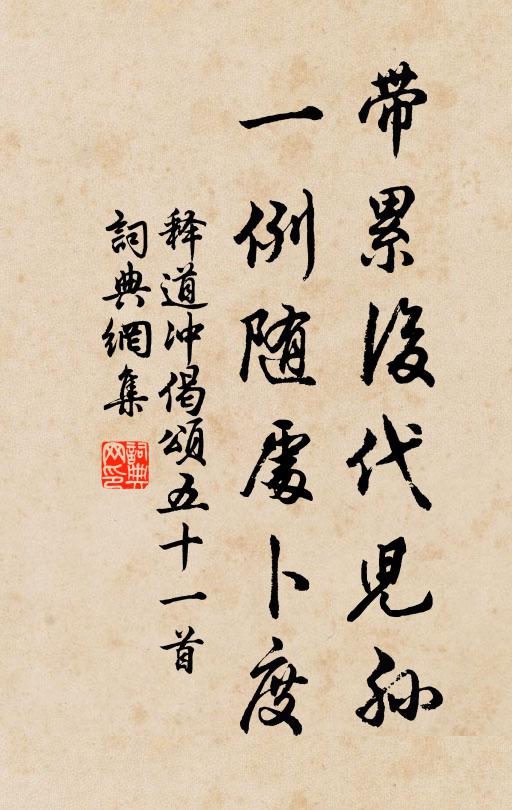 帶累後代兒孫
一例随處卜度
释道冲偈頌五十一首
詞典網集
詞典网印